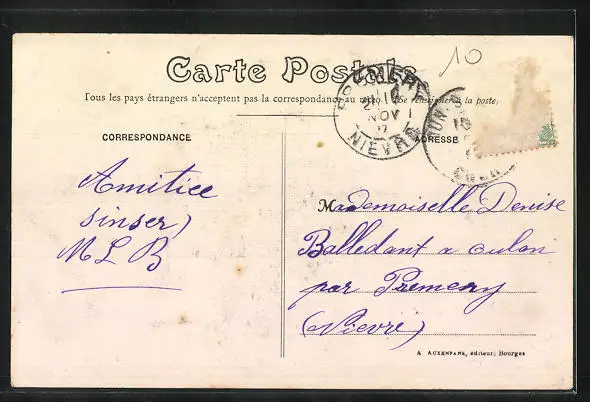 10
Carte Postale
Tous les pays étrangers n'acceptent pas la correspondance au recto (Se renseigner à la poste)
NOV
NIEVRE
CORRESPONDANCE
ADRESSE
Amitiee
sinser
M L B
Mademoiselle Denise
Balledant a oulon
par Premery
(Nievre)
A. AUXENFANS, éditeur, Bourges